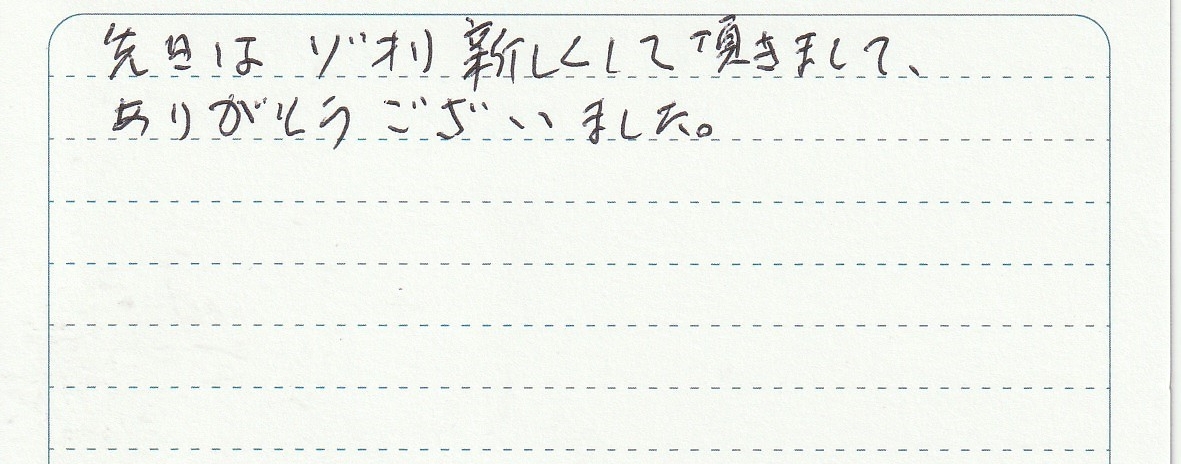 先日は ゾオリ 新しくして頂きまして、
ありがとうございました。